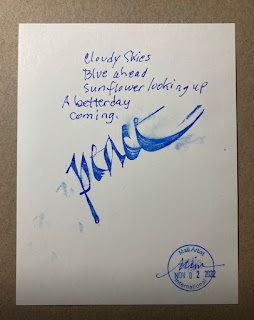 Cloudy Skies
Blue ahead
Sunflower looking up
A betterday
coming.
peace
Mail Artist
NOV 02 2022
International